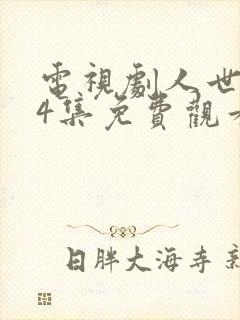 電視劇人世
4集免費觀
日胖大海寺